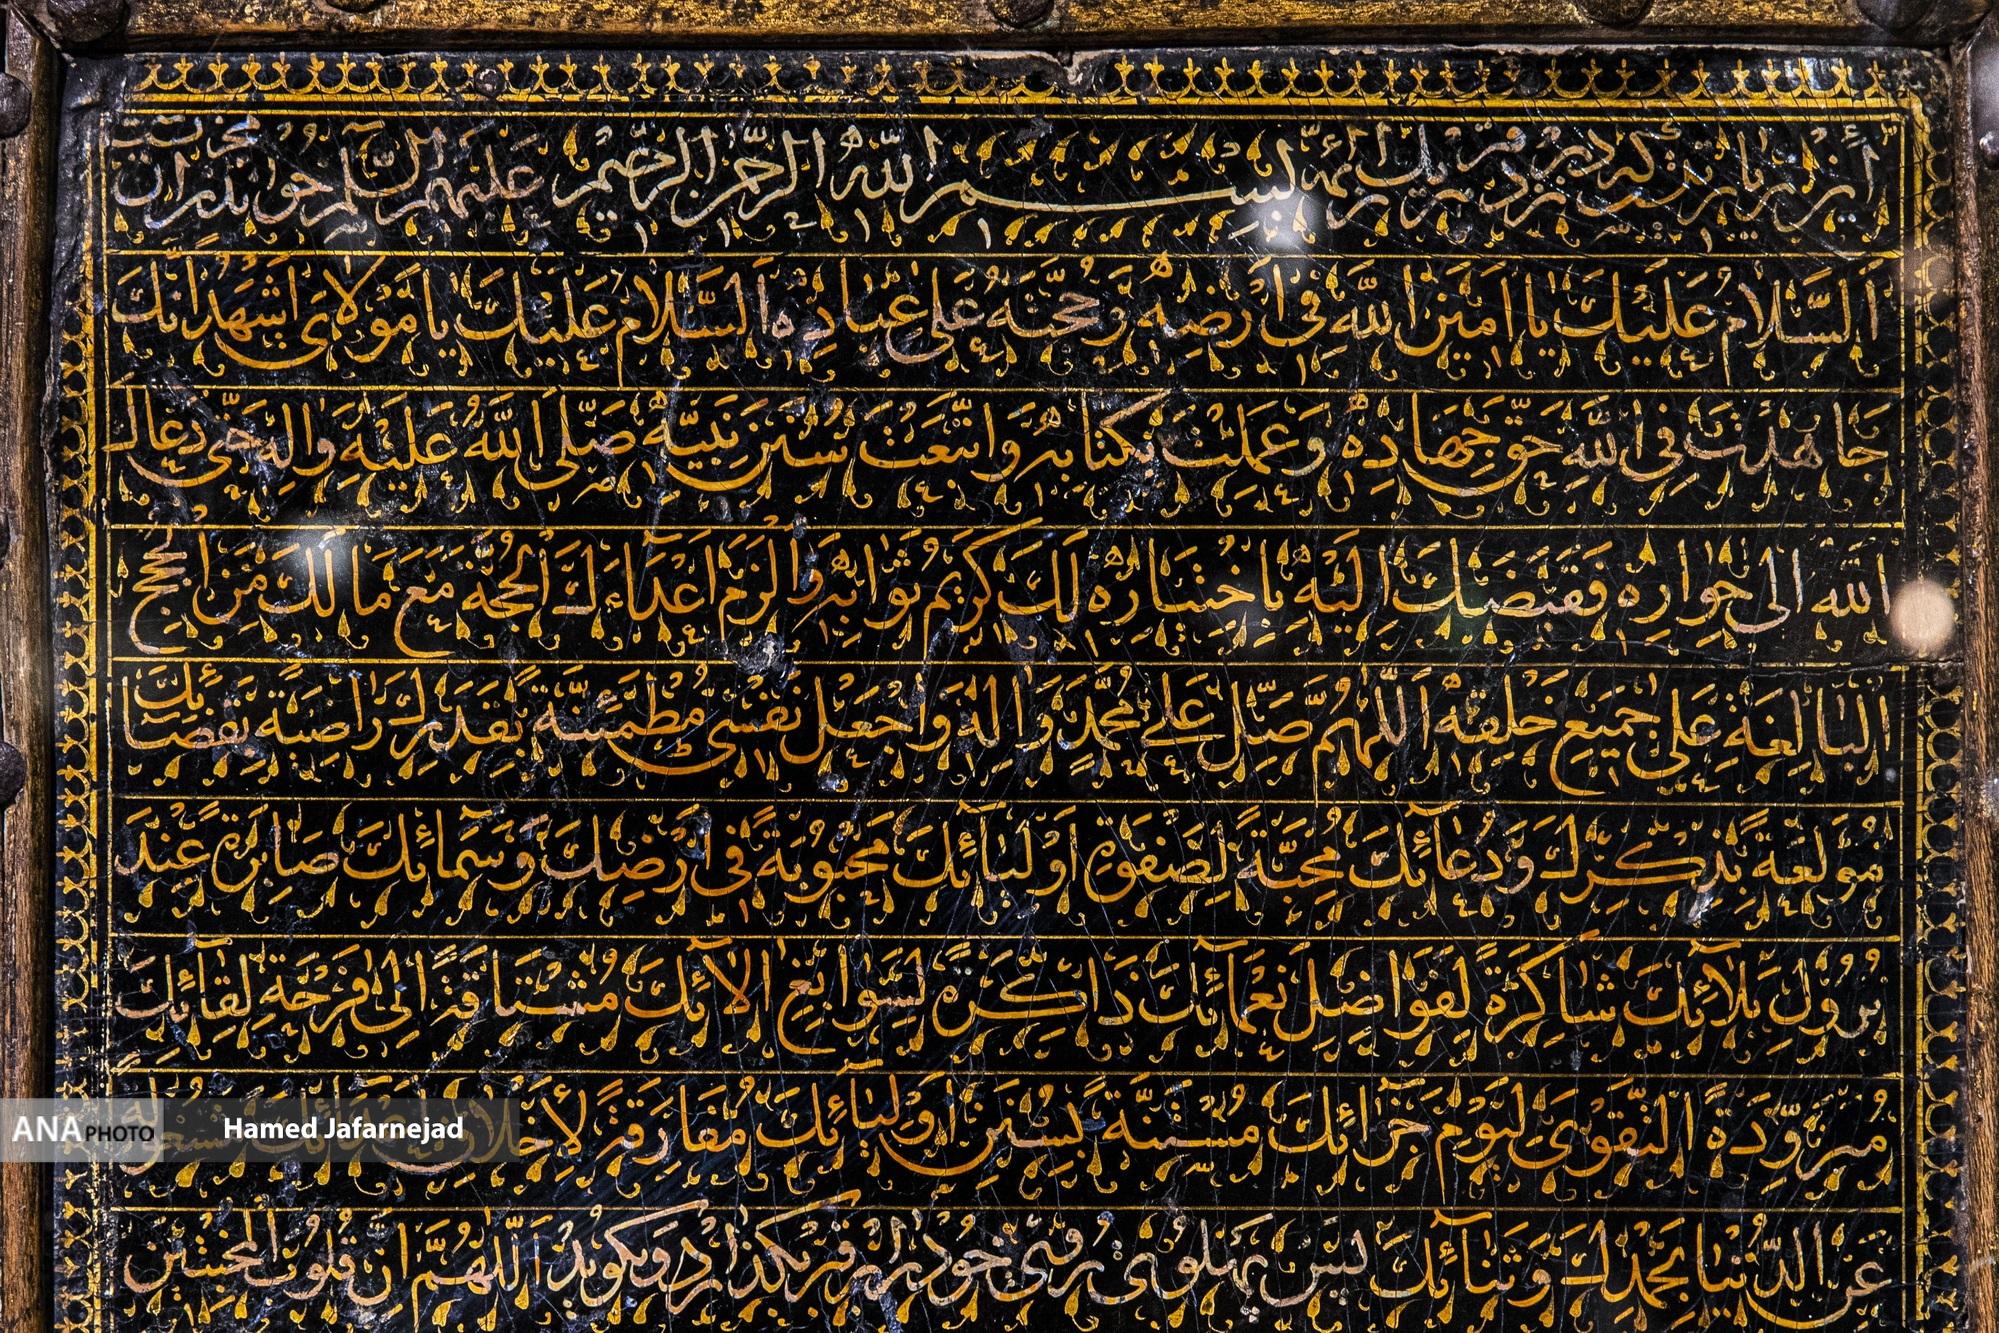 این زیارتیست که در نزد هر یک از ائمه بِسْمِ اللهِ الرَّحْمنِ الرَّحِیمِ علیهم السلام خوانده
اَلسَّلامُ عَلَیْكَ یا اَمینَ اللهِ فی اَرْضِهِ وَحُجَّتَهُ عَلی عِبادِهِ اَلسَّلامُ عَلَیْكَ یا مَوْلایَ اَشْهَدُ اَنَّكَ
جاهَدْتَ فِی اللهِ حَقَّ جِهادِهِ وَعَمِلْتَ بِکِتابِهِ وَاتَّبَعْتَ سُنَنَ نَبِیِّهِ صَلَّی اللهُ عَلَیْهِ وَالِهِ حَتّی دَعاكَ
اللهُ اِلی جِوارِهِ فَقَبَضَكَ اِلَیْهِ بِاخْتِیارِهِ لَكَ کَریمَ ثَوابِهِ وَاَلْزَمَ اَعْداءَكَ الْحُجَّةَ مَعَ مالَكَ مِنَ الْحُجَجِ
الْبالِغَةِ عَلی جَمیعِ خَلْقِهِ اَللّهُمَّ صَلِّ عَلی مُحَمَّدٍ وَالِهِ وَاجْعَلْ نَفْسی مُطْمَئِنَّةً بِقَدَرِكَ راضِیَةً بِقَضائِكَ
مُولَعَةً بِذِکْرِكَ وَدُعائِكَ مُحِبَّةً لِصَفْوَةِ اَوْلِیائِكَ مَحْبُوبَةً فی اَرْضِكَ وَسَمائِكَ صابِرَةً عِنْدَ
نُزُولِ بَلائِكَ شاکِرَةً لِفَواضِلِ نَعْمائِكَ ذاکِرَةً لِسَوابِغِ الائِكَ مُشْتاقَةً اِلی فَرْحَةِ لِقائِكَ
مُتَزَوِّدَةً التَّقْوی لِیَوْمِ جَزائِكَ مُسْتَنَّةً بِسُنَنِ اَوْلِیائِكَ مُفارِقَةً لِاَخْلاقِ اَعْدائِكَ مَشْغُولَةً
عَنِ الدُّنْیا بِحَمْدِكَ وَثَنائِكَ پس پهلوی روی خود را بر قبر بگذارد و بگوید اَللّهُمَّ اِنَّ قُلُوبَ الْمُخْبِتینَ
ANA PHOTO Hamed Jafarnejad